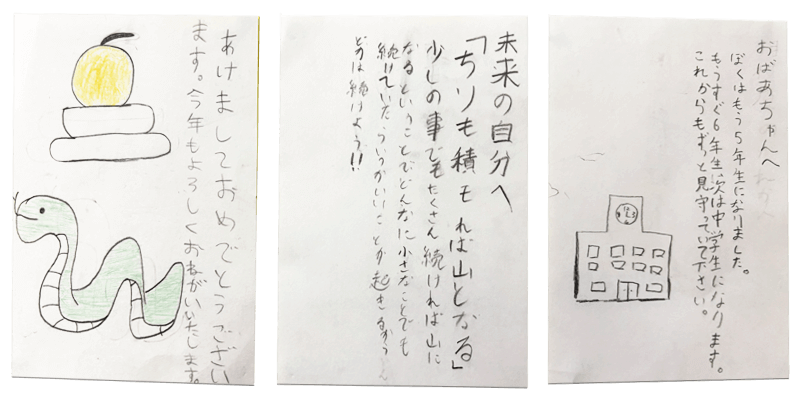 あけましておめでとうござい
ます。今年もよろしくおねがいいたします。
未来の自分へ
「ちりも積もれば山となる」
少しの事でもたくさん続ければ山に
なるということでどんなに小さなことでも
続けていたらいつかいいことが起きるから
どりょくは続けよう!!
おばあちゃんへ
ぼくはもう5年生になりました。
もうすぐ6年生次は中学生になります。
これからもずっと見守っていて下さい。